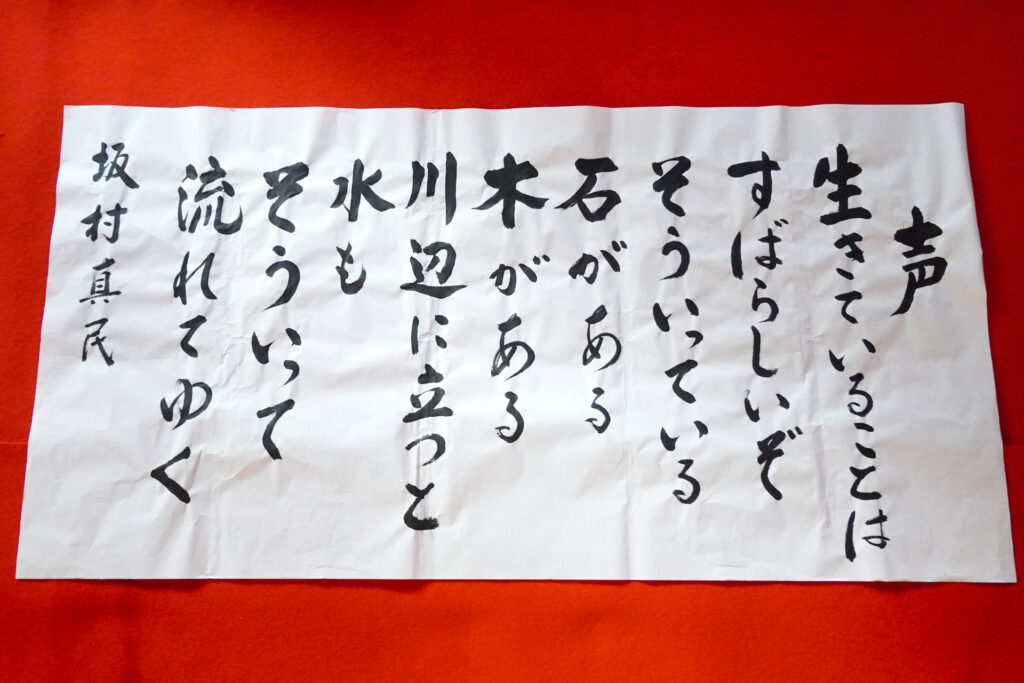 声
生きていることは
すばらしいぞ
そういっている
石がある
木がある
川辺に立つと
水も
そういって
流れてゆく
坂村真民